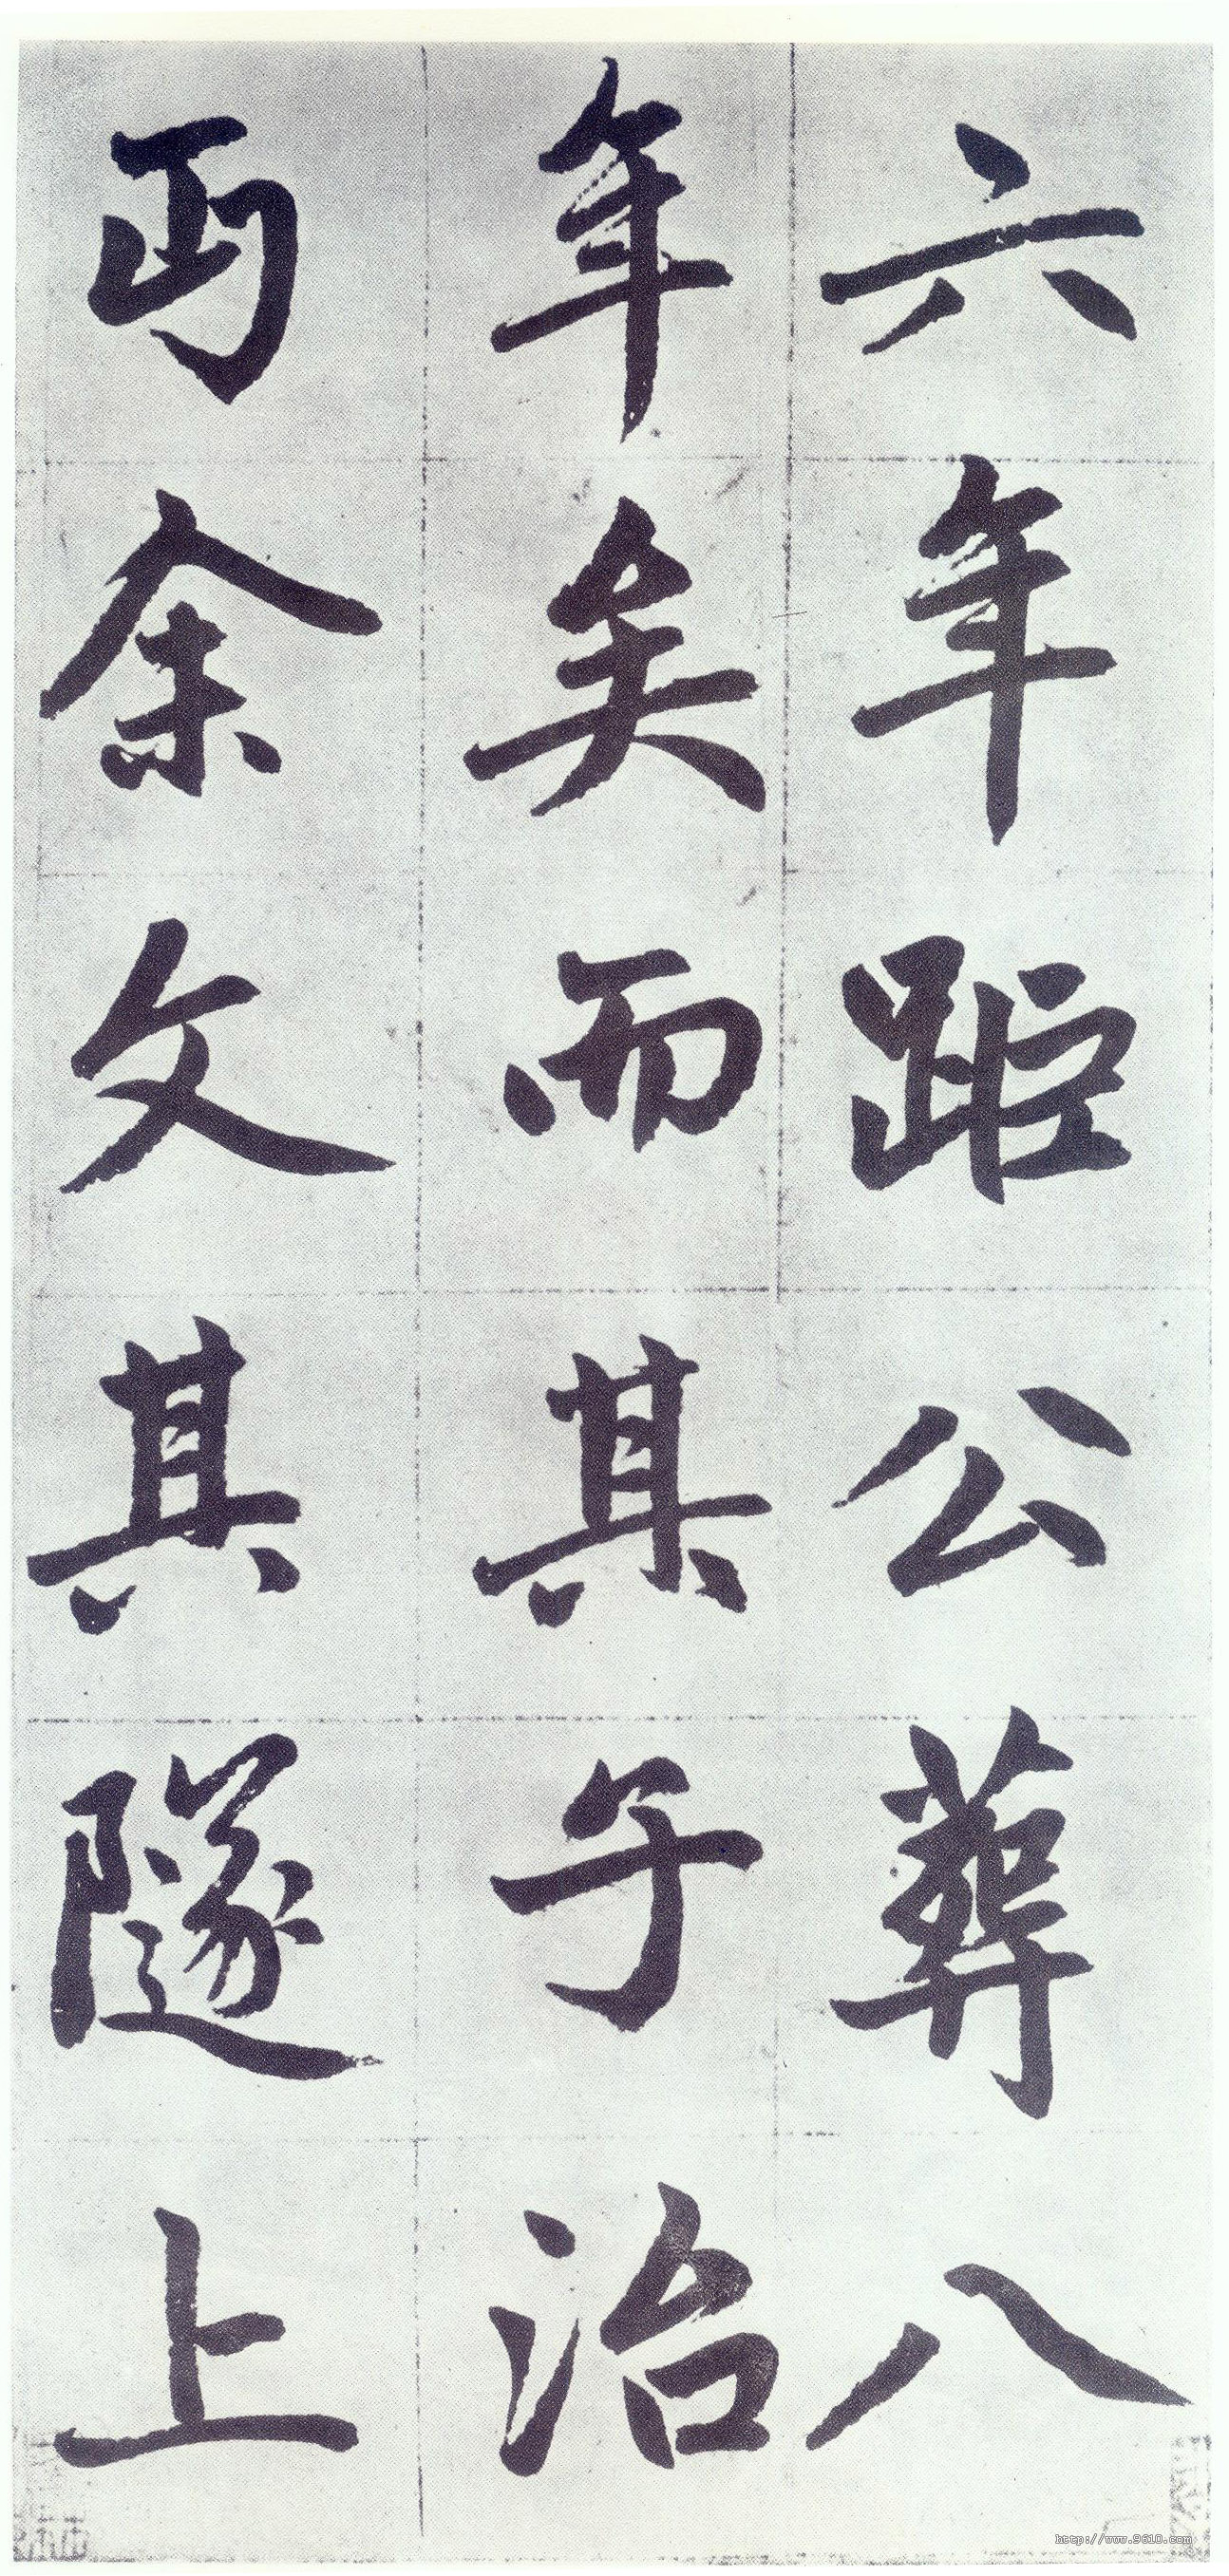 六年距公葬八
年矣而其子治
丐余文其隧上
http://www.9610.com